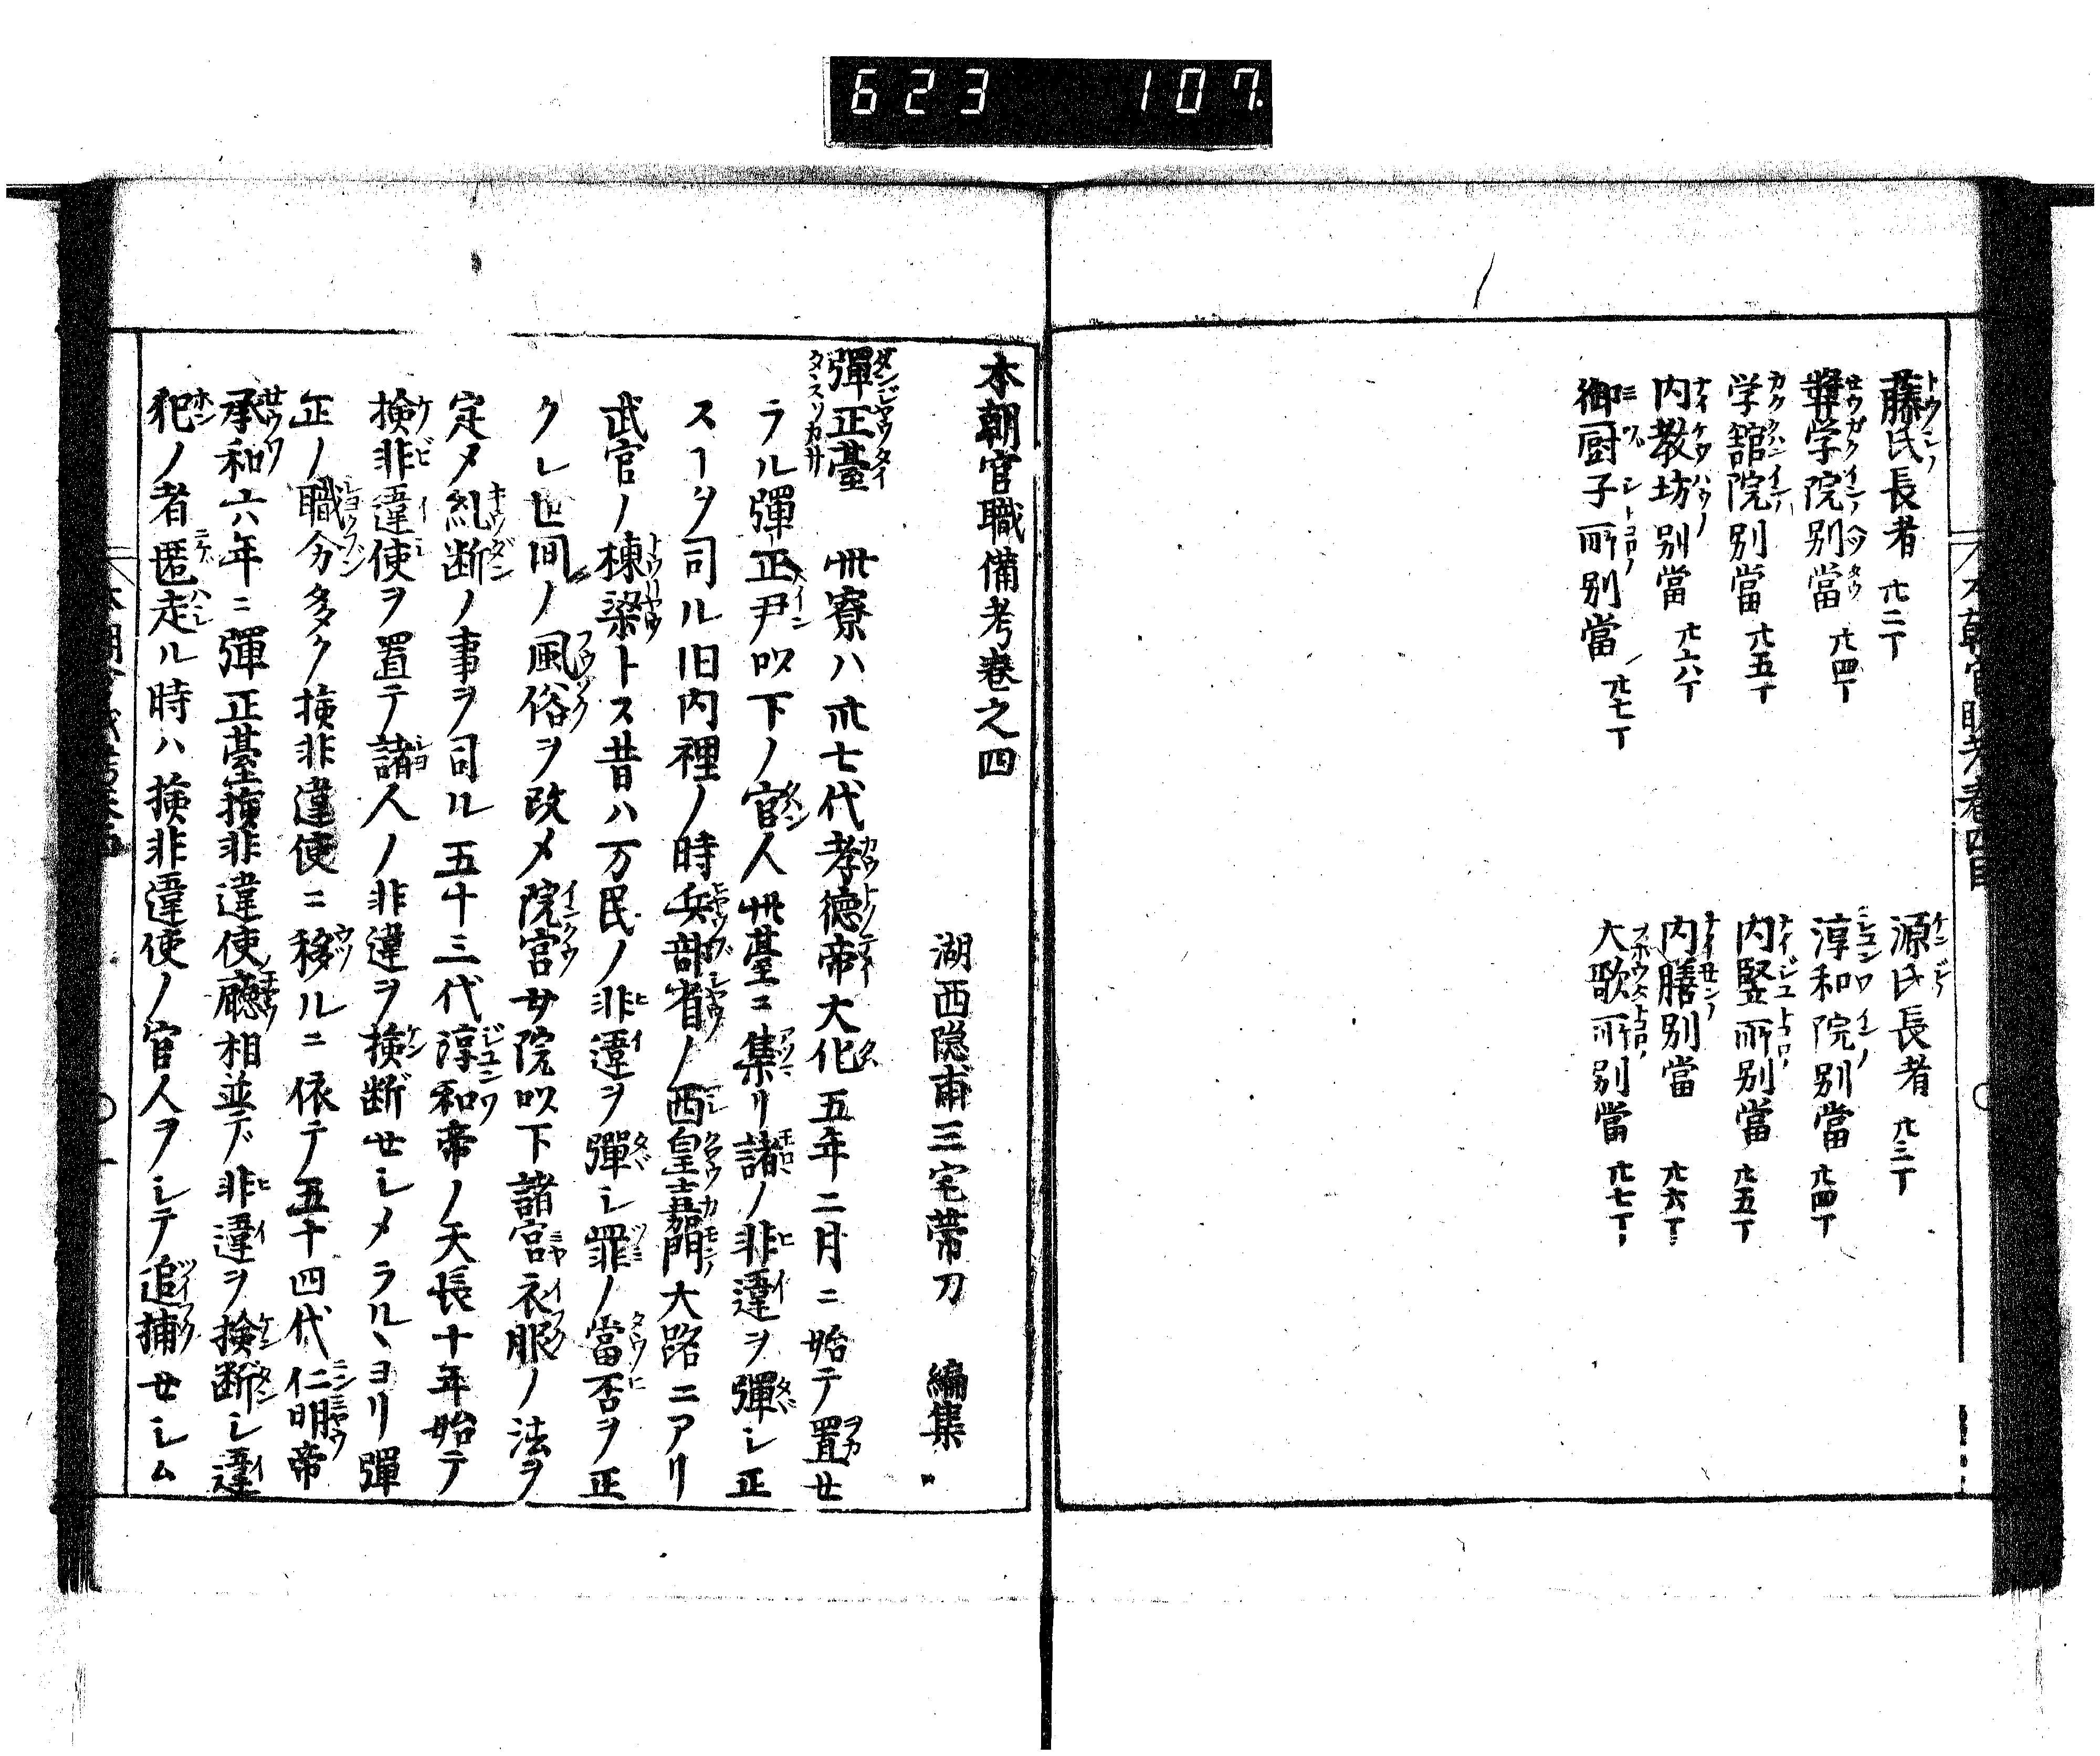 623 107
藤氏長者 廿二丁
奨学院別當 廿四丁
学舘院別當 廿五丁
内教坊別當 廿六丁
御厨子所別當 廿七丁
源氏長者 廿三丁
淳和院別當 廿四丁
内竪所別當 廿五丁
内膳別當 廿六丁
大歌所別當 廿七丁
本朝官職備考巻之四
湖西隠甫三宅帯刀 編集
彈正臺 此寮ハ卅七代孝徳帝大化五年二月ニ始テ置セ
ラル彈正尹以下ノ官人此臺ニ集リ諸ノ非違ヲ彈シ正
スヿヲ司ル旧内裡ノ時兵部省ノ西皇嘉門大路ニアリ
武官ノ棟梁トス昔ハ万民ノ非違ヲ彈シ罪ノ當否ヲ正
クシ世間ノ風俗ヲ改メ院宮女院以下諸宮衣服ノ法ヲ
定メ糺断ノ事ヲ司ル五十三代淳和帝ノ天長十年始テ
検非違使ヲ置テ諸人ノ非違ヲ検断セシメラルヽヨリ彈
正ノ職分多ク検非違使ニ移ルニ依テ五十四代仁明帝
承和六年ニ彈正臺検非違使廳相並デ非違ヲ検断シ違
犯ノ者匿走ル時ハ検非違使ノ官人ヲシテ追捕セシム